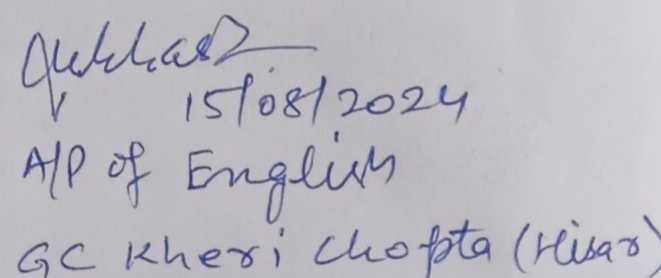 15/08/2024
A/P of English
GC Kheri Chopta (Hisar)